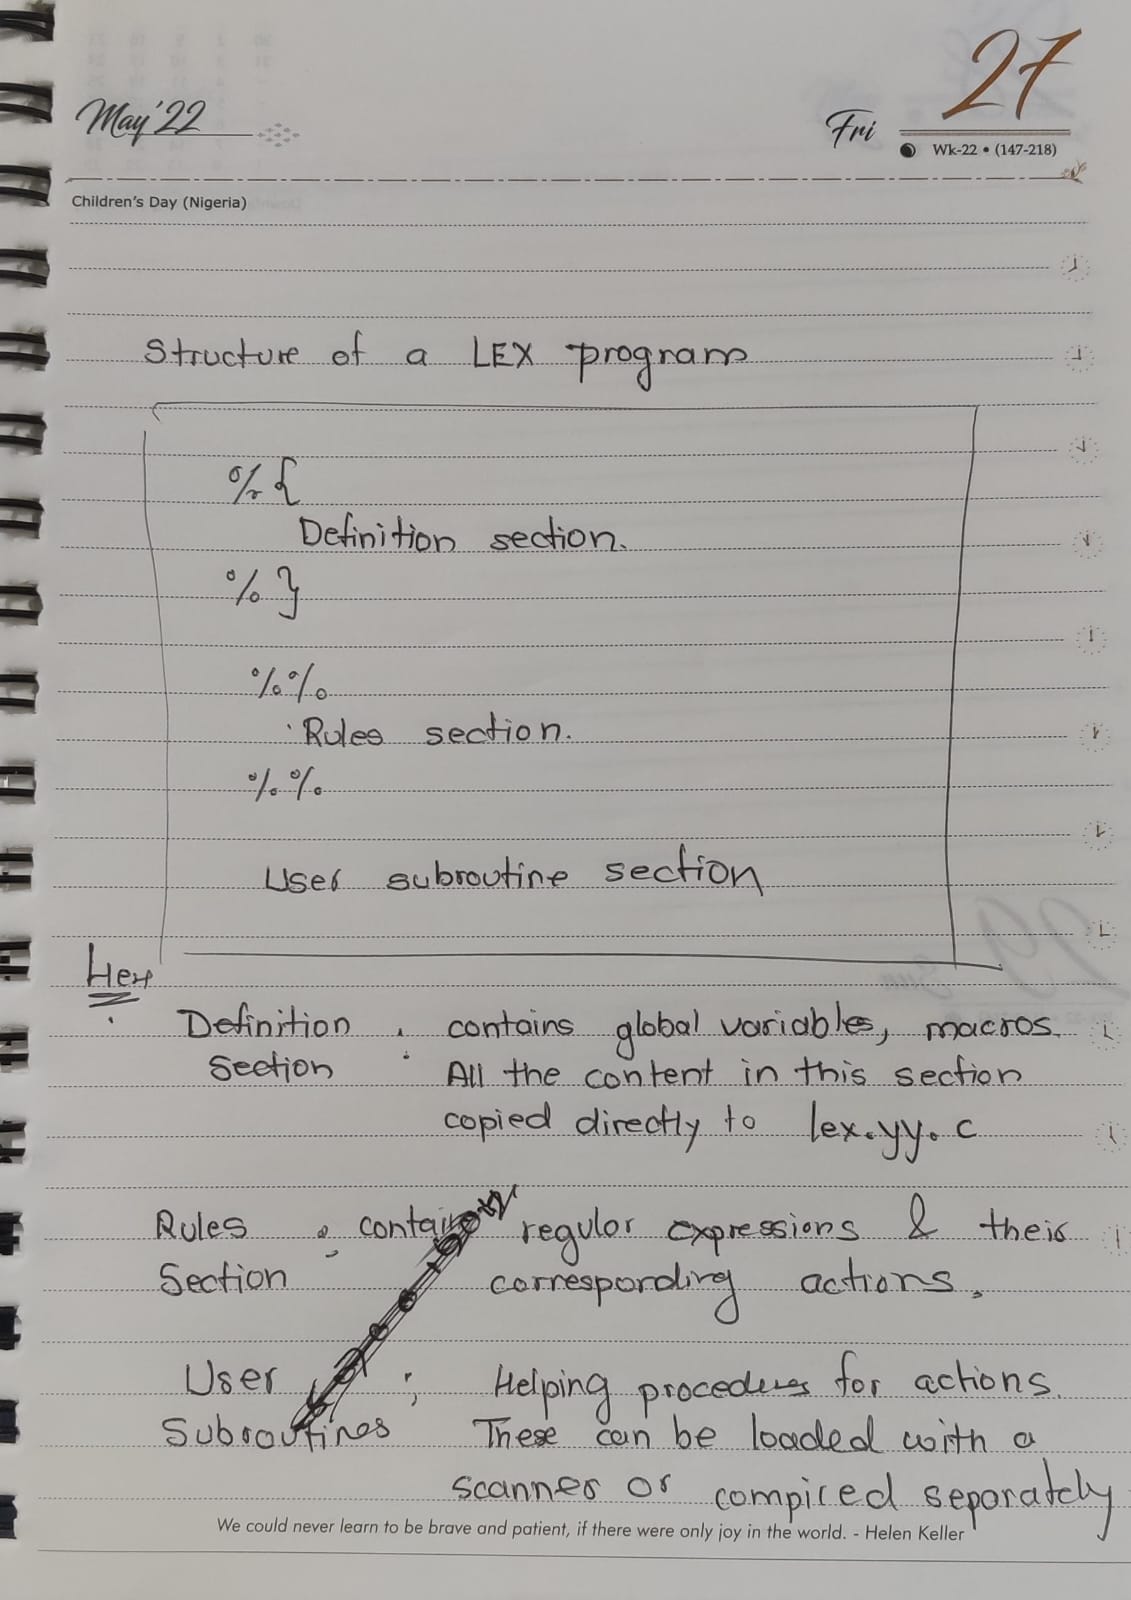 May'22
Fri 27
Wk-22 • (147-218)
Children's Day (Nigeria)
Structure of a LEX program
%{
Definition section.
%}
%%
Rules section.
%%
User subroutine section
Definition : contains global variables, macros.
Section All the content in this section
copied directly to lex.yy.c
Rules : contains regular expressions & their
Section corresponding actions.
User ; Helping procedures for actions.
Subroutines These can be loaded with a
scanner or compiled separately
We could never learn to be brave and patient, if there were only joy in the world. - Helen Keller